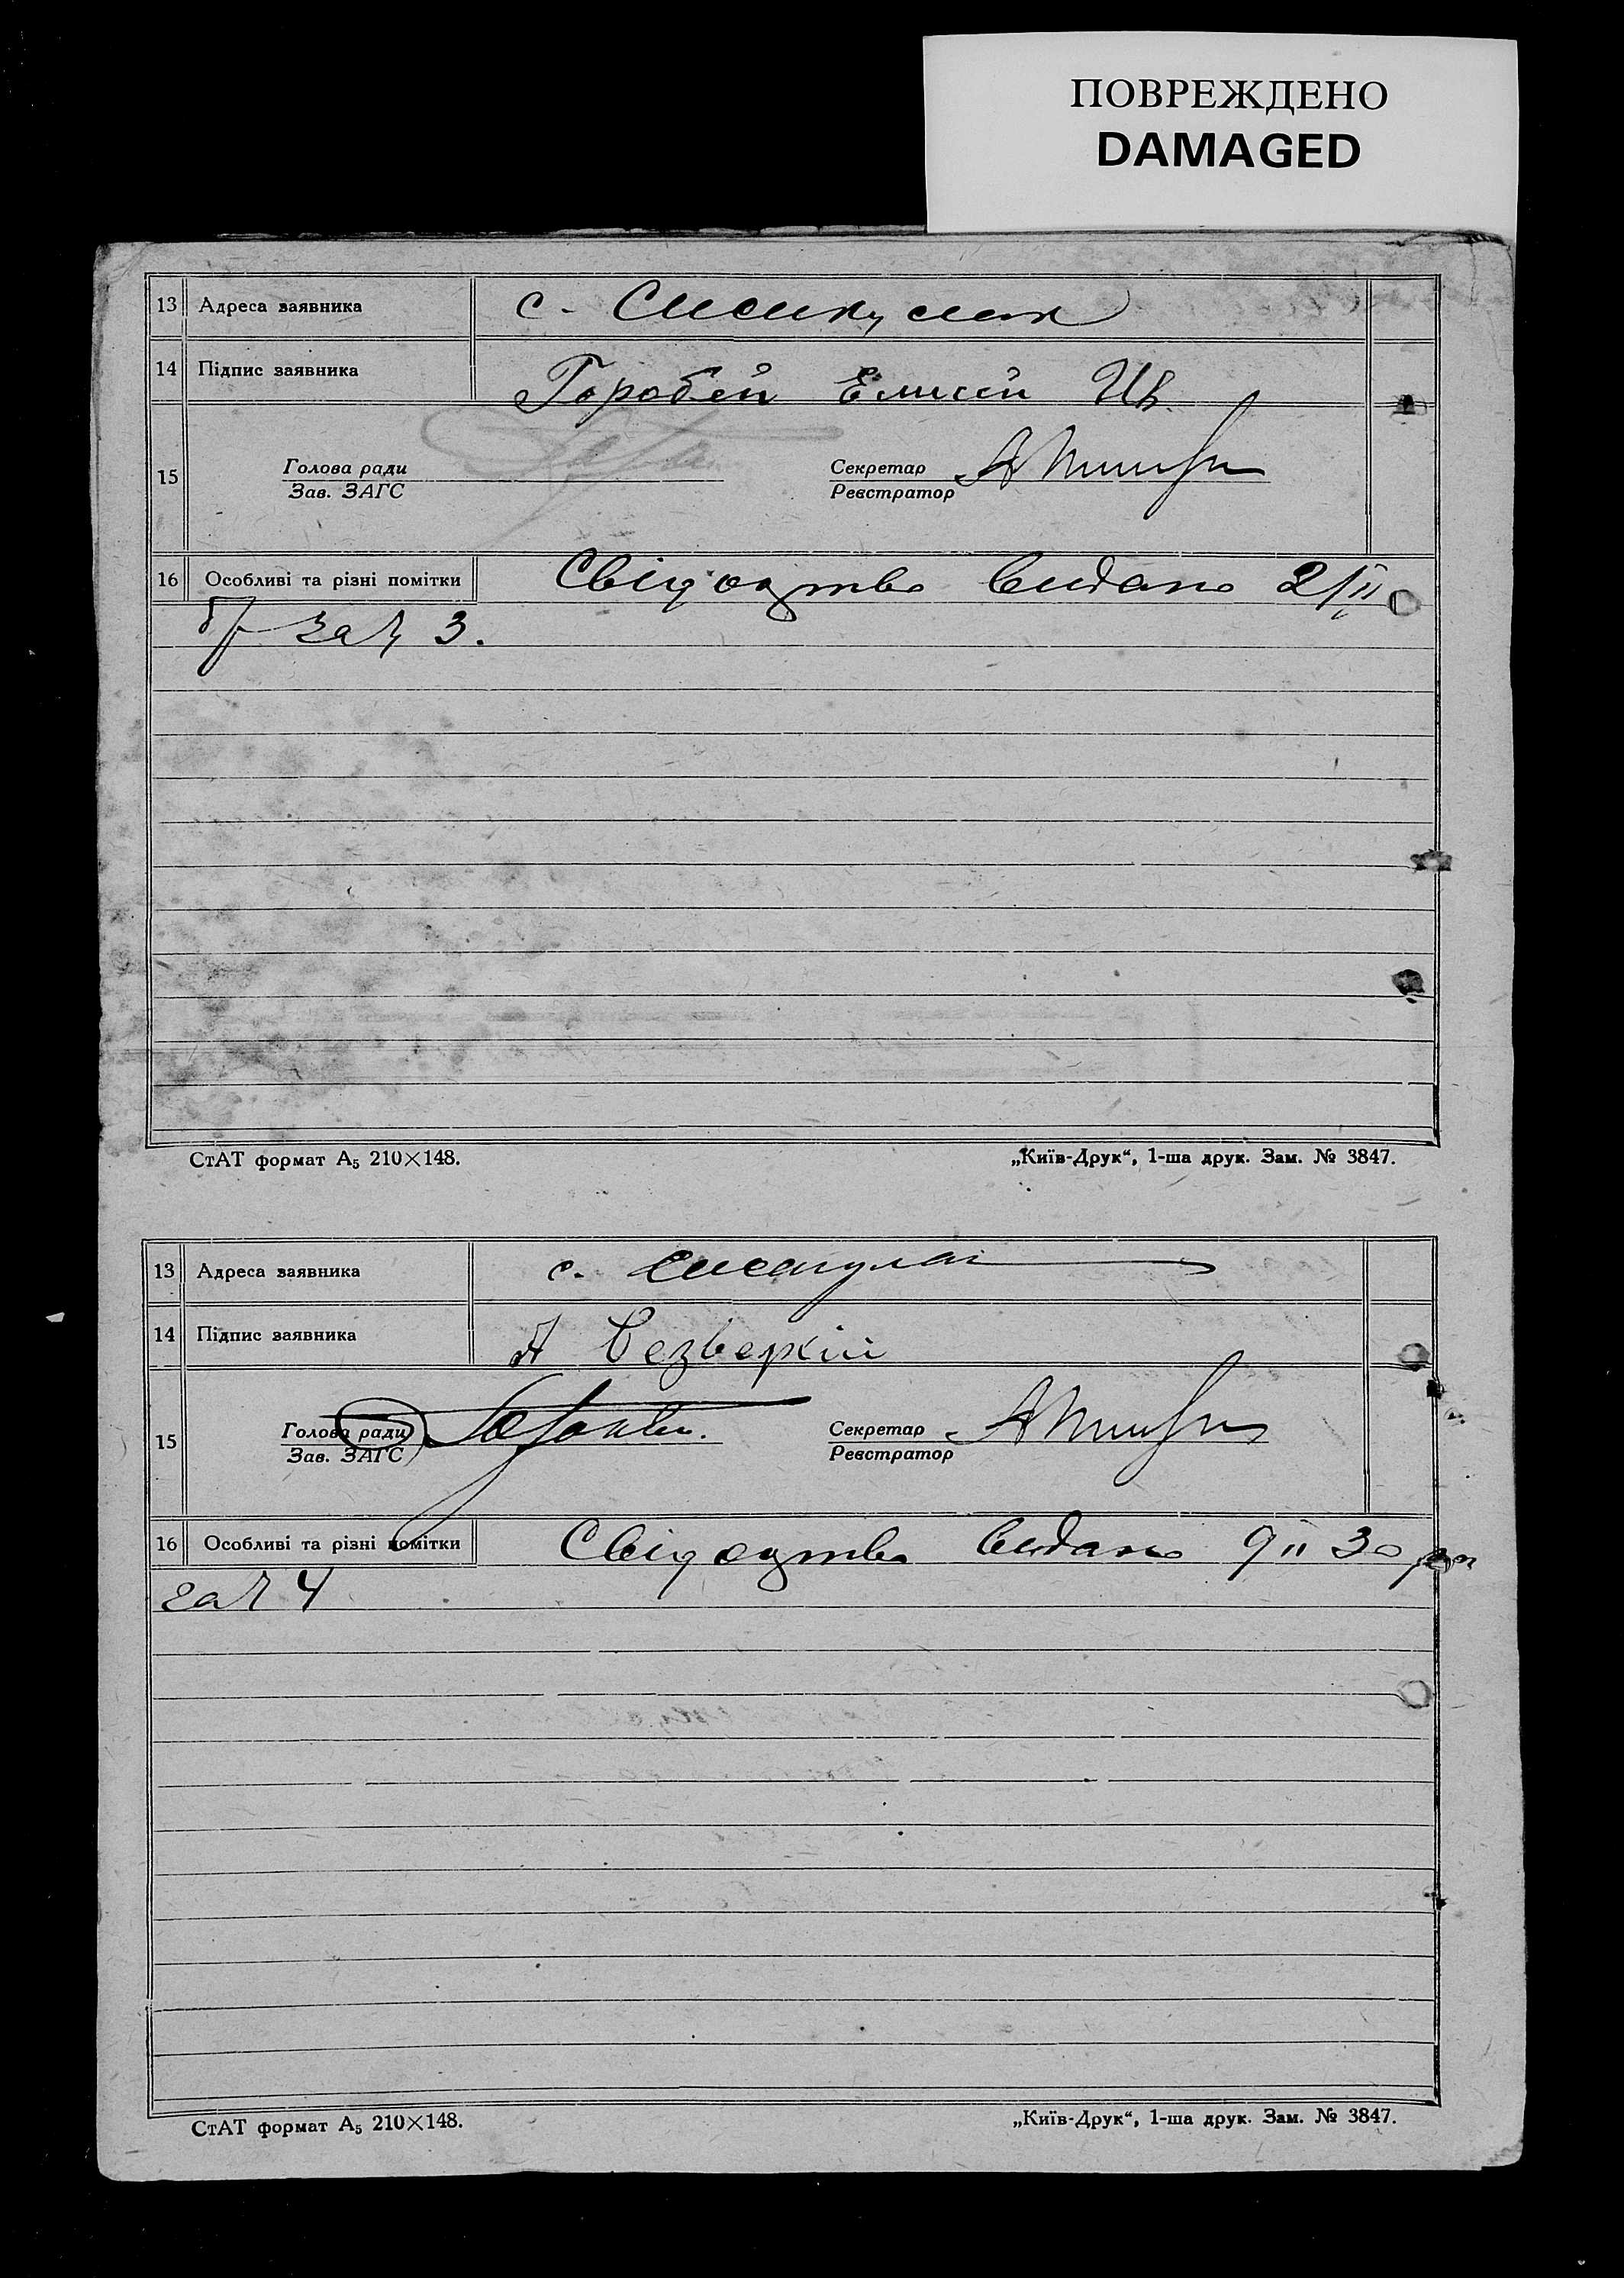 ПОВРЕЖДЕНО
DAMAGED
13 Адреса заявника с.
14 Підпис заявника Горобей Елисей Ив.
15 Голова ради Секретар
Зав. ЗАГС Реєстратор
16 Особливі та різні помітки Свідоцтво видано 2/II
за № 3.
СтАТ формат А₅ 210×148. „Київ-Друк“, 1-ша друк. Зам. № 3847.
13 Адреса заявника с.
14 Підпис заявника А Безверхій
15 Голова ради Секретар
Зав. ЗАГС Реєстратор
16 Особливі та різні помітки Свідоцтво видано 9 II 30 р
за № 4
СтАТ формат А₅ 210×148. „Київ-Друк“, 1-ша друк. Зам. № 3847.